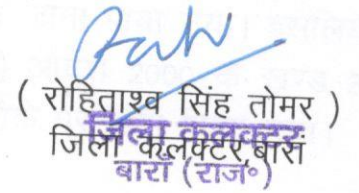 ( रोहिताश्व सिंह तोमर )
जिला कलक्टर
जिला कलक्टर, बारां
बारां (राज॰)